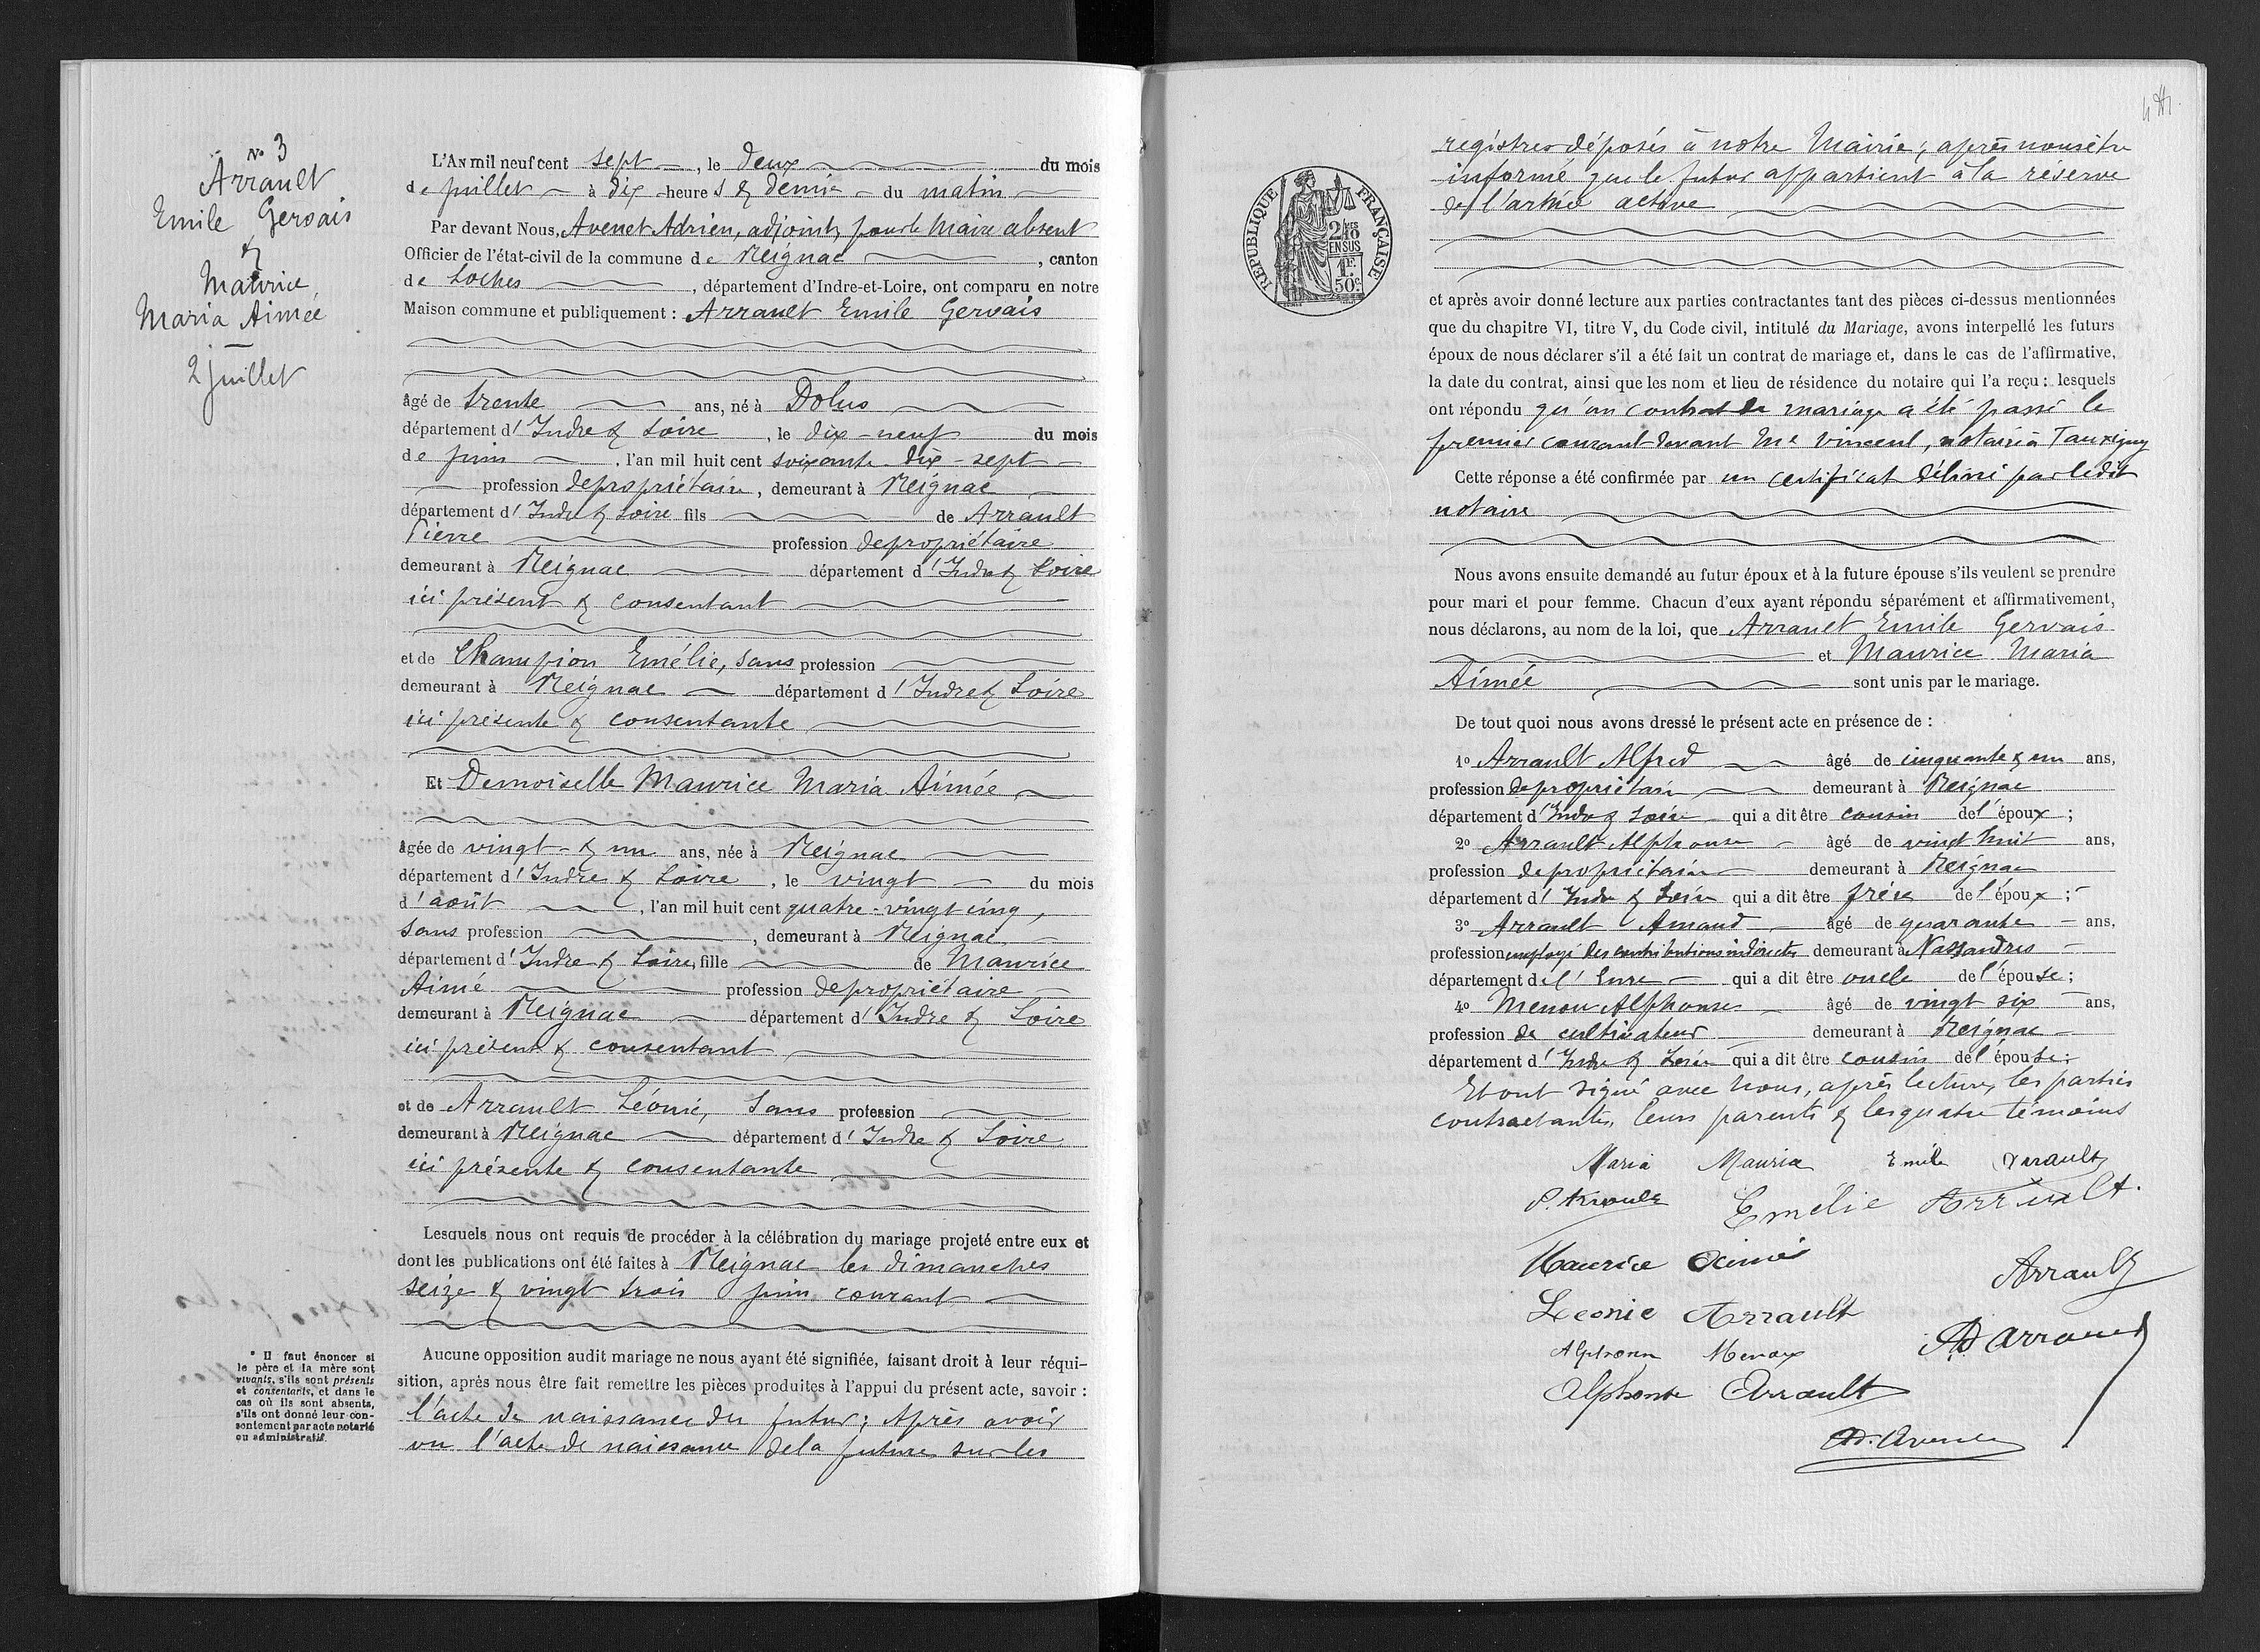 N° 3
Arrault
Emile Gervais
&
Maurice
Maria Aimée
2 juillet
L'AN mil neuf cent sept, le deux du mois
de juillet à dix heures & demie du matin
Par devant Nous, Avenet Adrien, adjoint, pour le Maire absent
Officier de l'état-civil de la commune de Reignac, canton
de Loches, département d'Indre-et-Loire, ont comparu en notre
Maison commune et publiquement : Arrault Emile Gervais
âgé de trente ans, né à Dolus
département d'Indre & Loire, le dix-neuf du mois
de juin, l'an mil huit cent soixante-dix-sept
profession de propriétaire, demeurant à Reignac
département d'Indre & Loire fils de Arrault
Pierre profession de propriétaire
demeurant à Reignac département d'Indre & Loire
ici présent & consentant
et de Champion Emélie, sans profession
demeurant à Reignac département d'Indre & Loire
ici présente & consentante
Et Demoiselle Maurice Maria Aimée
âgée de vingt-&-un ans, née à Reignac
département d'Indre & Loire, le vingt du mois
d'août, l'an mil huit cent quatre-vingt cinq,
sans profession, demeurant à Reignac
département d'Indre & Loire, fille de Maurice
Aimé profession de propriétaire
demeurant à Reignac département d'Indre & Loire
ici présent & consentant
et de Arrault Léonie, sans profession
demeurant à Reignac département d'Indre & Loire
ici présente & consentante
Lesquels nous ont requis de procéder à la célébration du mariage projeté entre eux et
dont les publications ont été faites à Reignac les dimanches
seize & vingt trois juin courant
* Il faut énoncer si
le père et la mère sont
vivants, s'ils sont présents
et consentants, et dans le
cas où ils sont absents,
s'ils ont donné leur con-
sentement par acte notarié
ou administratif.
Aucune opposition audit mariage ne nous ayant été signifiée, faisant droit à leur réqui-
sition, après nous être fait remettre les pièces produites à l'appui du présent acte, savoir :
l'acte de naissance du futur ; Après avoir
vu l'acte de naissance de la future sur les
RÉPUBLIQUE FRANÇAISE
2/10es
EN SUS
1F.
50c.
registres déposés à notre Mairie ; après nous être
informé que le futur appartient à la réserve
de l'armée active
et après avoir donné lecture aux parties contractantes tant des pièces ci-dessus mentionnées
que du chapitre VI, titre V, du Code civil, intitulé du Mariage, avons interpellé les futurs
époux de nous déclarer s'il a été fait un contrat de mariage et, dans le cas de l'affirmative,
la date du contrat, ainsi que les nom et lieu de résidence du notaire qui l'a reçu : lesquels
ont répondu qu'un contrat de mariage a été passé le
premier courant devant Me Vincent, notaire à Tauxigny
Cette réponse a été confirmée par un certificat délivré par ledit
notaire
Nous avons ensuite demandé au futur époux et à la future épouse s'ils veulent se prendre
pour mari et pour femme. Chacun d'eux ayant répondu séparément et affirmativement,
nous déclarons, au nom de la loi, que Arrault Emile Gervais
et Maurice Maria
Aimée sont unis par le mariage.
De tout quoi nous avons dressé le présent acte en présence de :
1° Arrault Alfred âgé de cinquante & un ans,
profession de propriétaire demeurant à Reignac
département d'Indre & Loire qui a dit être cousin de l'époux ;
2° Arrault Alphonse âgé de vingt huit ans,
profession de propriétaire demeurant à Reignac
département d'Indre & Loire qui a dit être frère de l'époux ;
3° Arrault Amand âgé de quarante ans,
profession employé des contributions indirectes demeurant à Nassandres
département de l'Eure qui a dit être oncle de l'épouse ;
4° Menou Alphonse âgé de vingt six ans,
profession de cultivateur demeurant à Reignac
département d'Indre & Loire qui a dit être cousin de l'épouse ;
Et ont signé avec nous, après lecture, les parties
contractantes, leurs parents & les quatre témoins
Maria Maurice Emile Arrault
P. Arrault Emélie Arrault.
Maurice Aimé
Arrault
Léonie Arrault
Ad Arrault
Alphonse Menou
Alphonse Arrault
Ad. Avenet